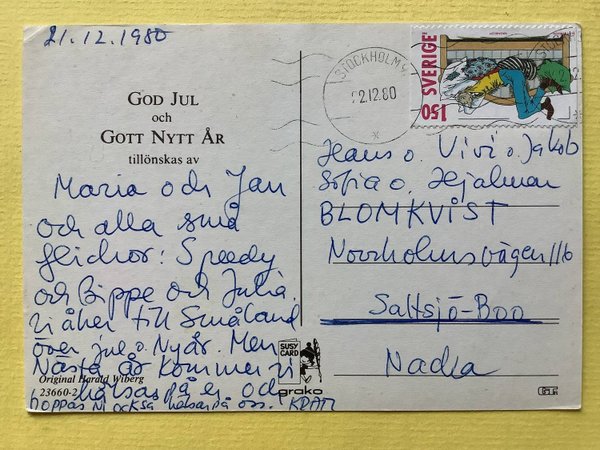 21.12.1980
GOD JUL
och
GOTT NYTT ÅR
tillönskas av
Maria och Jan
och alla små
flickor: Speedy
och Bippe och Julia.
vi åker till Småland
över jul o. Nyår. Men
Nästa år kommer vi
hälsar på er och
hoppas ni också hälsar på oss. KRAM
Original Harald Wiberg
23660-2
SUSY
CARD
grako
STOCKHOLM
22.12.80
SVERIGE
150
Hans o. Vivi o. Jakob
Sofia o. Hjalmar
BLOMKVIST
Norrholmsvägen 116
Saltsjö-Boo
Nacka